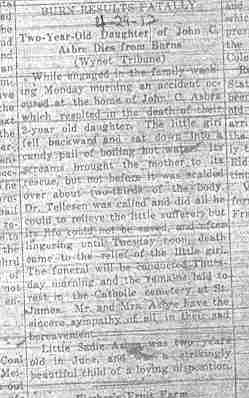 BURN RESULTS FATALLY
4-24-12
Two-Year-Old Daughter of John C.
Ashre Dies from Burns
(Wynot Tribune)
While engaged in the family wash-
ing Monday morning an accident oc-
cured at the home of John C. Ashre
which resulted in the death of their
2-year old daughter. The little girl
fell backward and sat down into a
candy pail of boiling hot water. Its
screams brought the mother to its
rescue, but not before it was scalded
over about two-thirds of the body.
Dr. Tellesen was called and did all he
could to relieve the little sufferer, but
life could not be saved, and after
linguring until Tuesday noon death
came to the relief of the little girl.
The funeral will be conducted Thurs-
day morning and the remains laid to
rest in the Catholic cemetery at St.
James. Mr. and Mrs. have the
sincere sympathy of all in their sad
bereavement.
Little Sadie was two years
old in June, and a strikingly
beautiful child of a loving disposition.
Fruit Farm